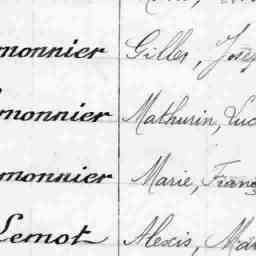 monnier Gilles, Josep
monnier Mathurin, Luc
monnier Marie, Franç
Lemot Alexis, Ma